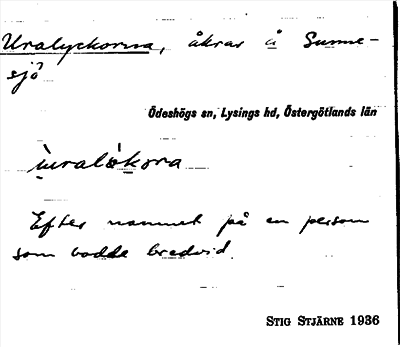 Uralyckorna, åkrar å Sunne-
sjö
Ödeshögs sn, Lysings hd, Östergötlands län
ùralökora
Efter namnet på en person
som bodde bredvid.
STIG STJÄRNE 1936